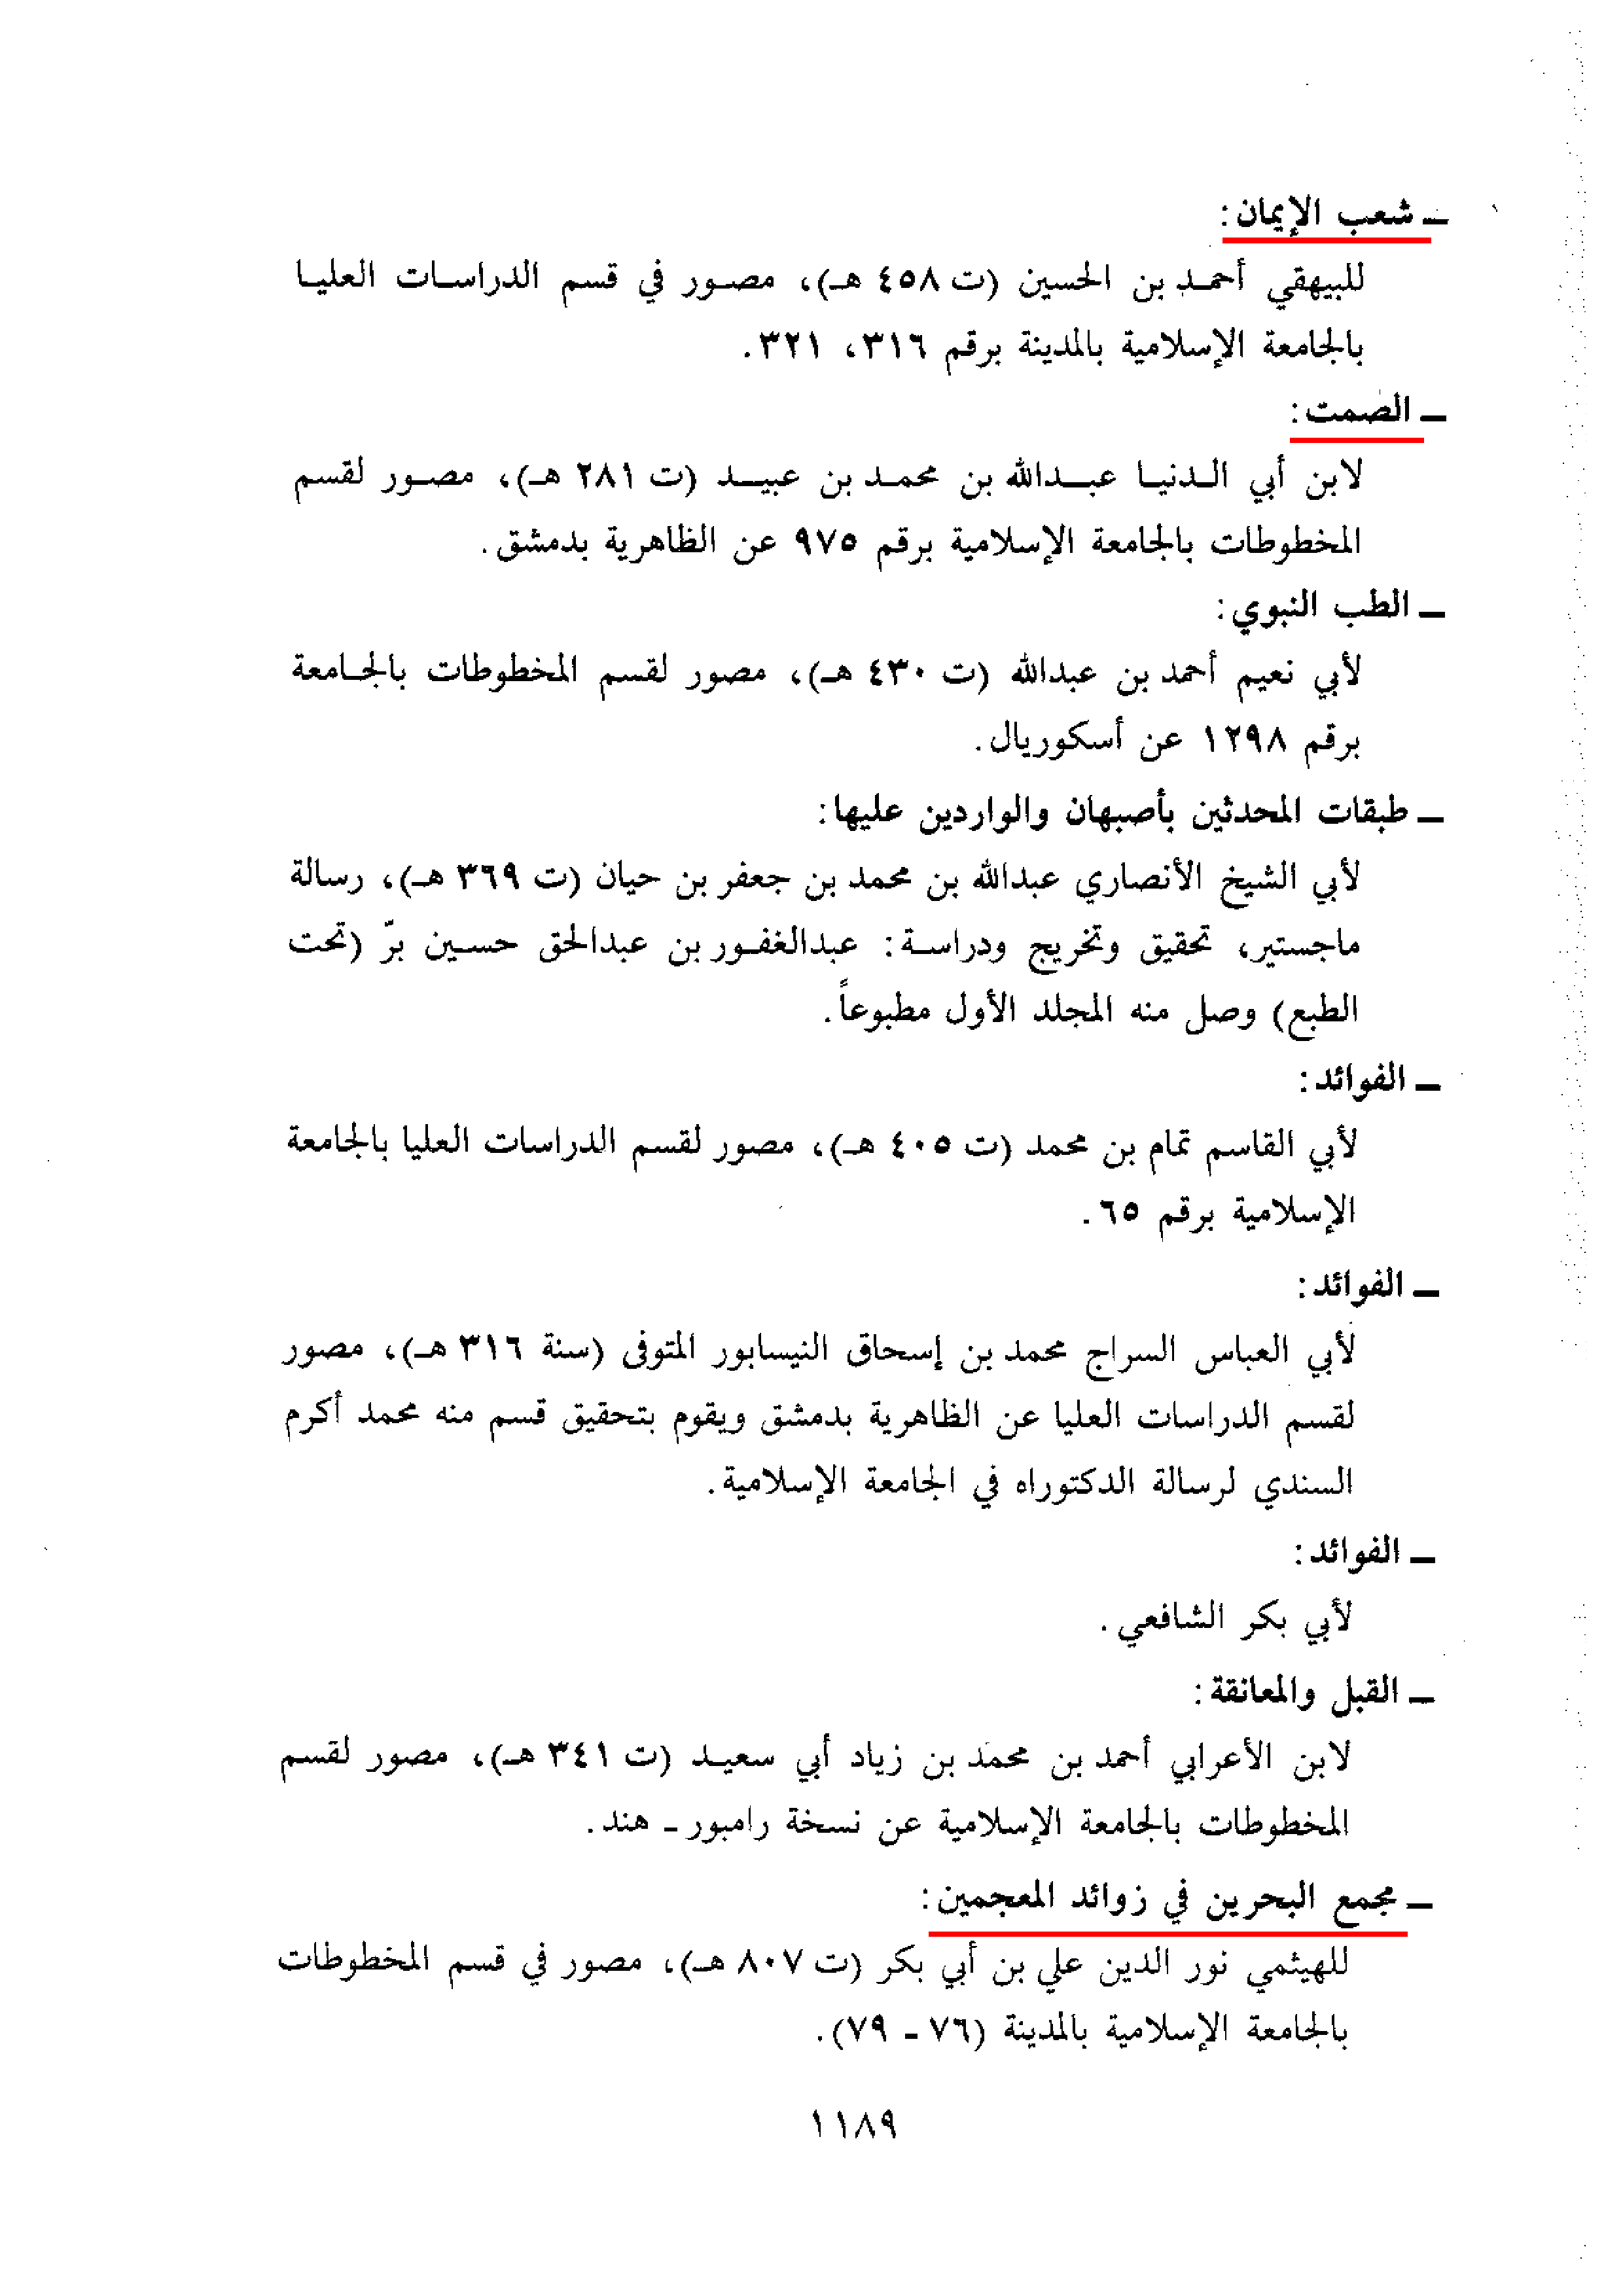 ــ شعب الإيمان:
للبيهقي أحمد بن الحسين (ت ٤٥٨ هـ)، مصور في قسم الدراسات العليا
بالجامعة الإسلامية بالمدينة برقم ٣١٦، ٣٢١.
ــ الصمت:
لابن أبي الدنيا عبدالله بن محمد بن عبيد (ت ٢٨١ هـ)، مصور لقسم
المخطوطات بالجامعة الإسلامية برقم ٩٧٥ عن الظاهرية بدمشق.
ــ الطب النبوي:
لأبي نعيم أحمد بن عبدالله (ت ٤٣٠ هـ)، مصور لقسم المخطوطات بالجامعة
برقم ١٢٩٨ عن أسكوريال.
ــ طبقات المحدثين بأصبهان والواردين عليها:
لأبي الشيخ الأنصاري عبدالله بن محمد بن جعفر بن حيان (ت ٣٦٩ هـ)، رسالة
ماجستير، تحقيق وتخريج ودراسة: عبدالغفور بن عبدالحق حسين برّ (تحت
الطبع) وصل منه المجلد الأول مطبوعاً.
ــ الفوائد:
لأبي القاسم تمام بن محمد (ت ٤٠٥ هـ)، مصور لقسم الدراسات العليا بالجامعة
الإسلامية برقم ٦٥.
ــ الفوائد:
لأبي العباس السراج محمد بن إسحاق النيسابور المتوفى (سنة ٣١٦ هـ)، مصور
لقسم الدراسات العليا عن الظاهرية بدمشق ويقوم بتحقيق قسم منه محمد أكرم
السندي لرسالة الدكتوراه في الجامعة الإسلامية.
ــ الفوائد:
لأبي بكر الشافعي.
ــ القبل والمعانقة:
لابن الأعرابي أحمد بن محمد بن زياد أبي سعيد (ت ٣٤١ هـ)، مصور لقسم
المخطوطات بالجامعة الإسلامية عن نسخة رامبور ـ هند.
ــ مجمع البحرين في زوائد المعجمين:
للهيثمي نور الدين علي بن أبي بكر (ت ٨٠٧ هـ)، مصور في قسم المخطوطات
بالجامعة الإسلامية بالمدينة (٧٦ ـ ٧٩).
١١٨٩